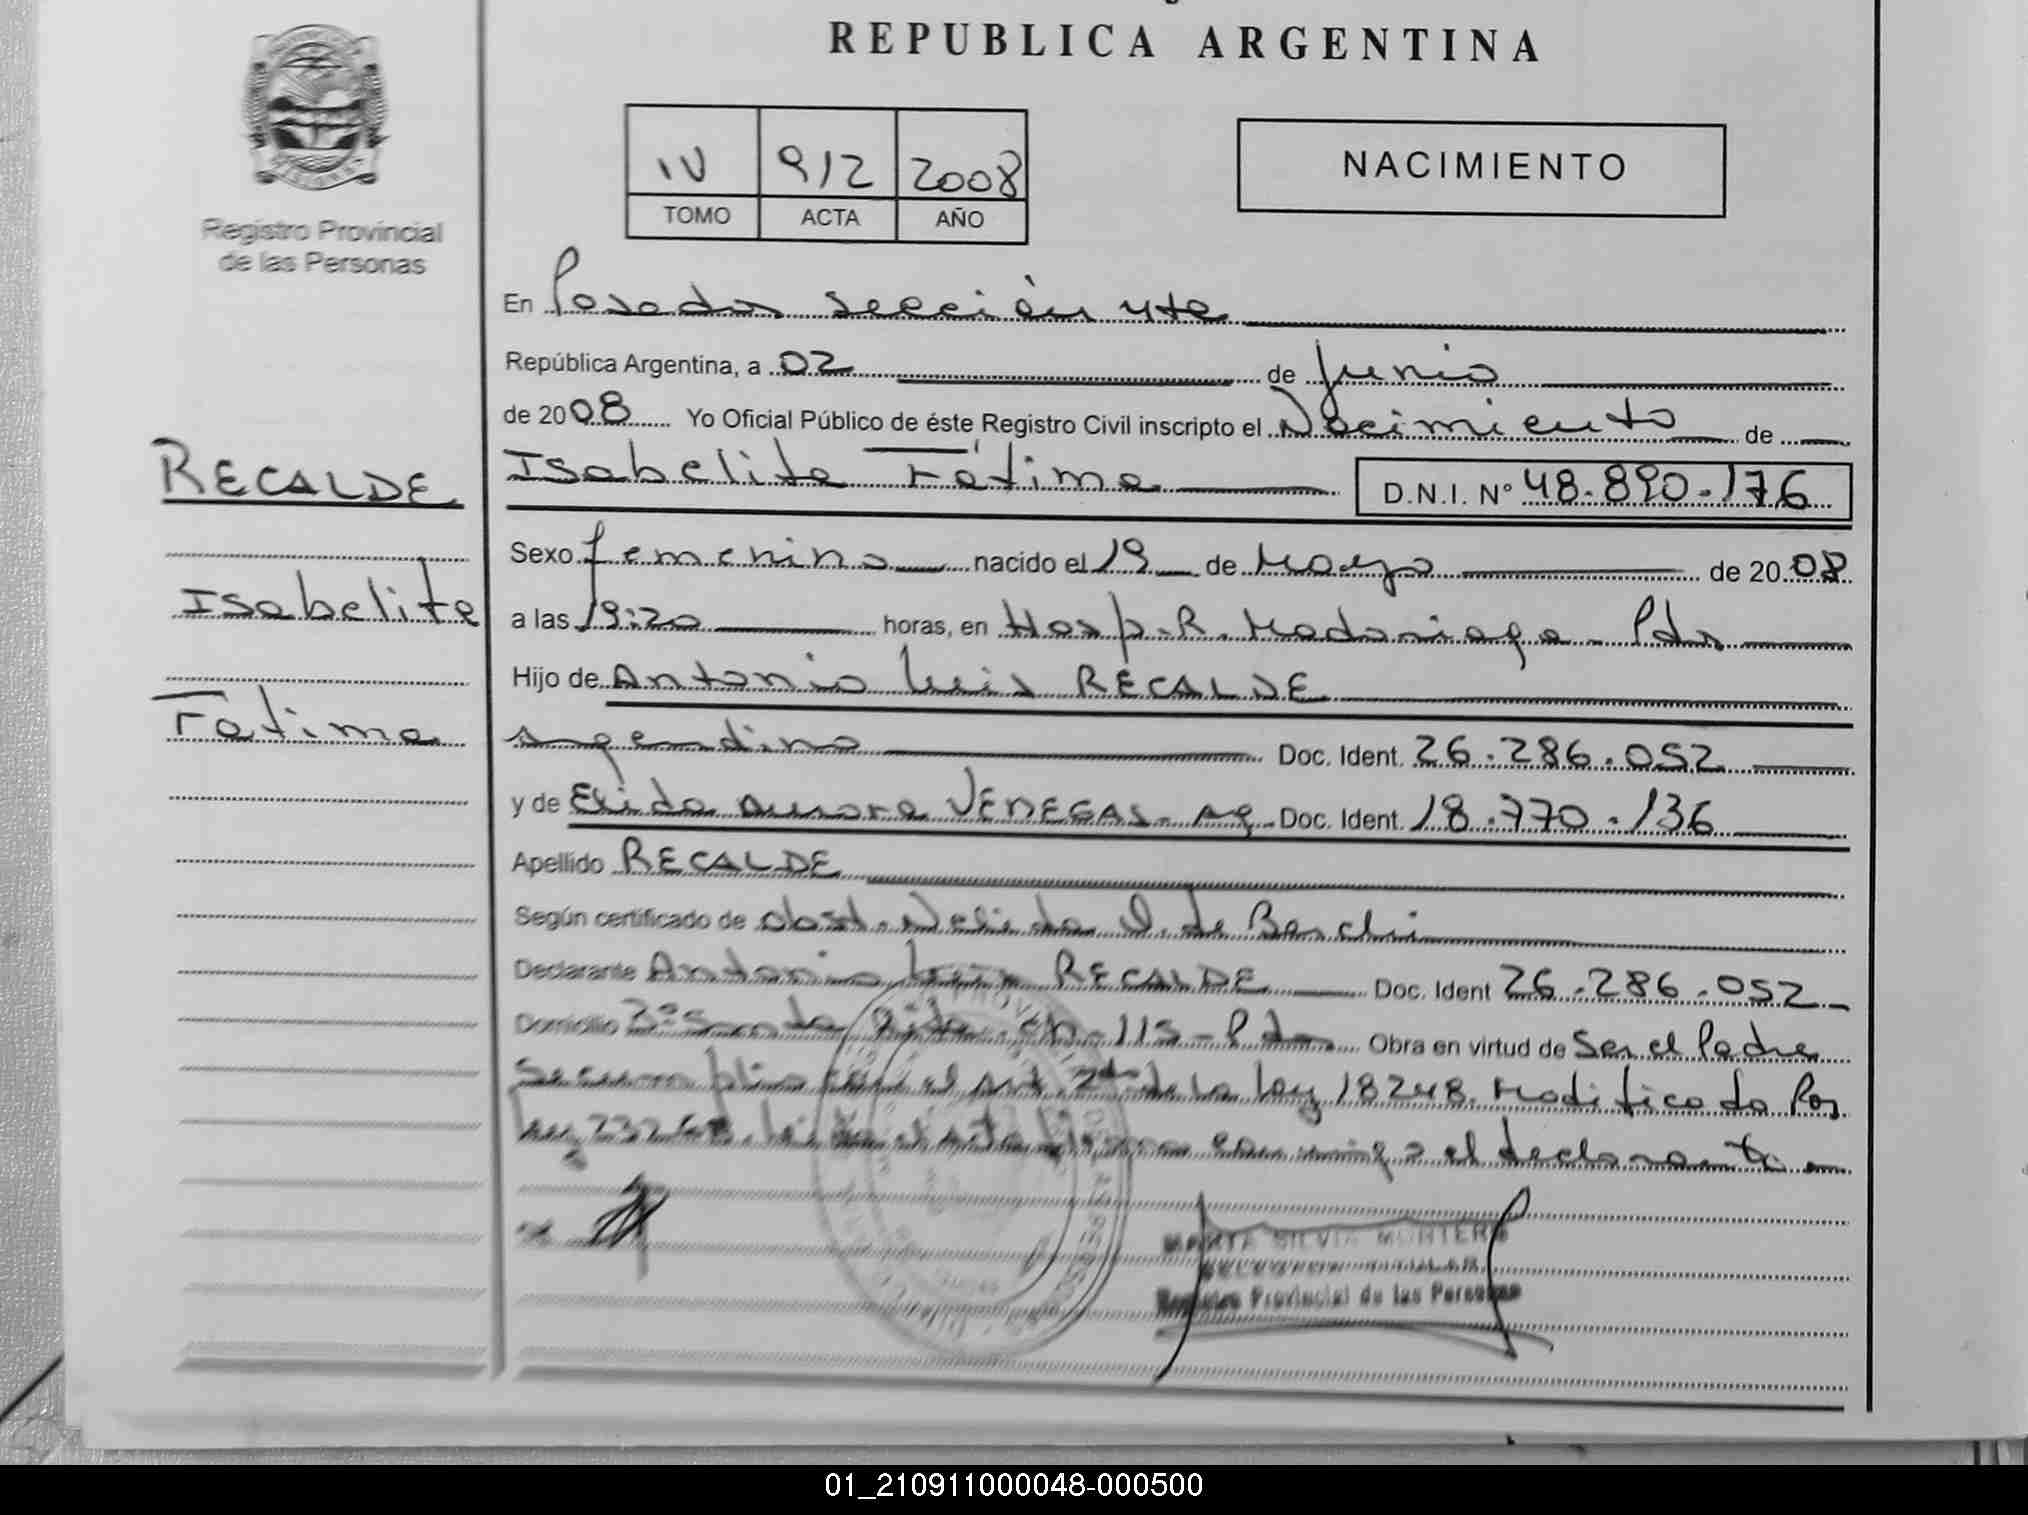 REPUBLICA ARGENTINA
IV 912 2008
TOMO ACTA AÑO
NACIMIENTO
Registro Provincial
de las Personas
RECALDE
Isabelita
Fátima
En Posadas sección 4ta
República Argentina, a 02 de Junio
de 2008 Yo Oficial Público de éste Registro Civil inscripto el Nacimiento de
Isabelita Fátima D.N.I. Nº 48.890.176
Sexo femenino nacido el 19 de Mayo de 2008
a las 19:20 horas, en Hosp. R. Madariaga - Pdas
Hijo de Antonio Luis RECALDE
argentino Doc. Ident. 26.286.052
y de Elida Aurora VENEGAS - Ag. Doc. Ident. 18.770.136
Apellido RECALDE
Según certificado de obst. Nelida de
Declarante Antonio Luis RECALDE Doc. Ident 26.286.052
Domicilio Santa Rita ch-115-Pdas Obra en virtud de Ser el Padre
Se cumplio con el Art. 2do de la ley 18248. Modificado Por
ley el acta firma conmigo el declarante
MARTA SILVIA
Registro Provincial de las Personas
01_210911000048-000500